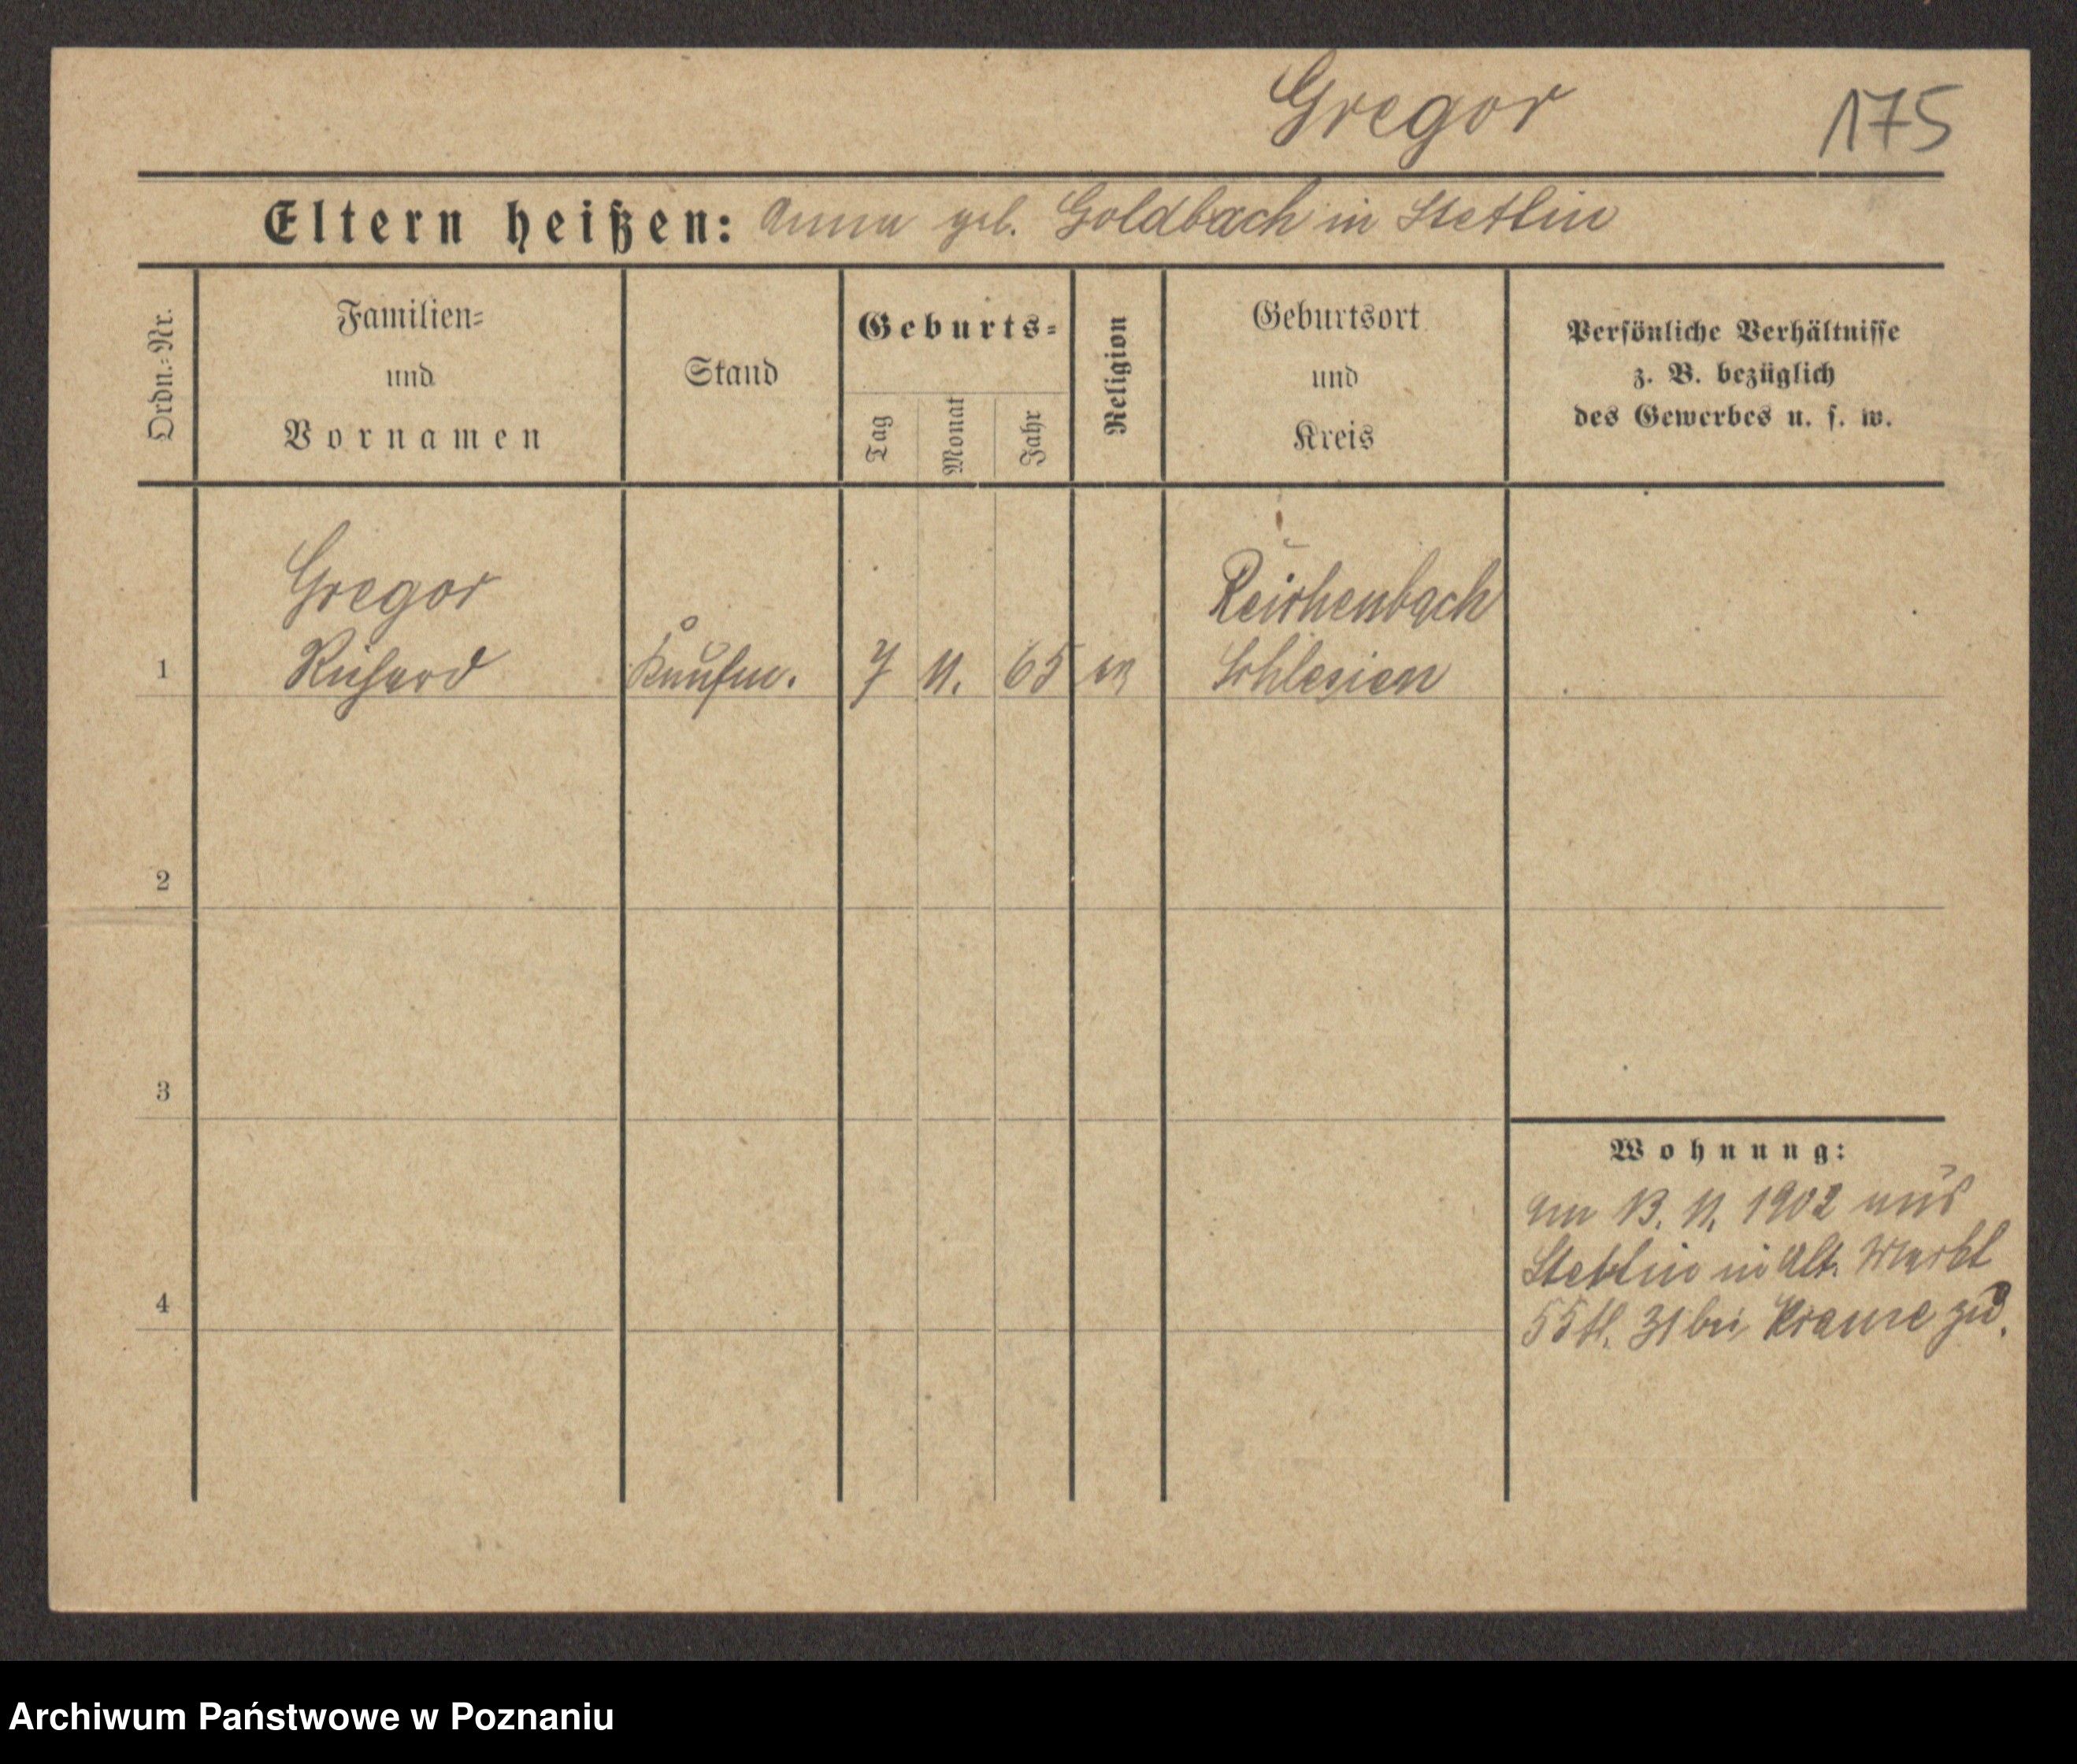 Gregor 175
Eltern heißen: Anna geb. Goldbach in Stettin
Ordn.-Nr.
Familien-
und
Vornamen
Stand
Geburts-
Tag
Monat
Jahr
Religion
Geburtsort
und
Kreis
Persönliche Verhältnisse
z. B. bezüglich
des Gewerbes u. s. w.
1
Gregor
Richard
Kaufm.
7
11.
65
ev
Reichenbach
Schlesien
2
3
4
Wohnung:
am 13. 11. 1902 aus
Stettin in Alt. Markt
55 31 bei Krause zu.
Archiwum Państwowe w Poznaniu